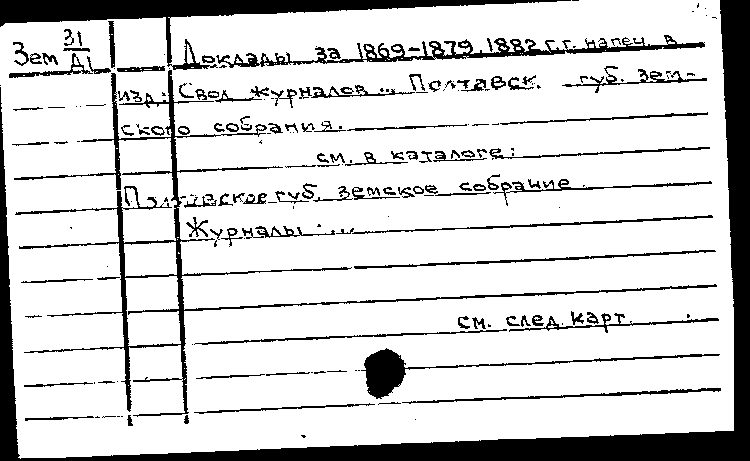 Зем 31/Д1 Доклады за 1869-1879, 1882 г.г. напеч. в
изд.: Свод журналов ... Полтавск. губ. зем-
ского собрания.
см. в каталоге:
Полтавское губ. земское собрание.
Журналы ...
см. след. карт.